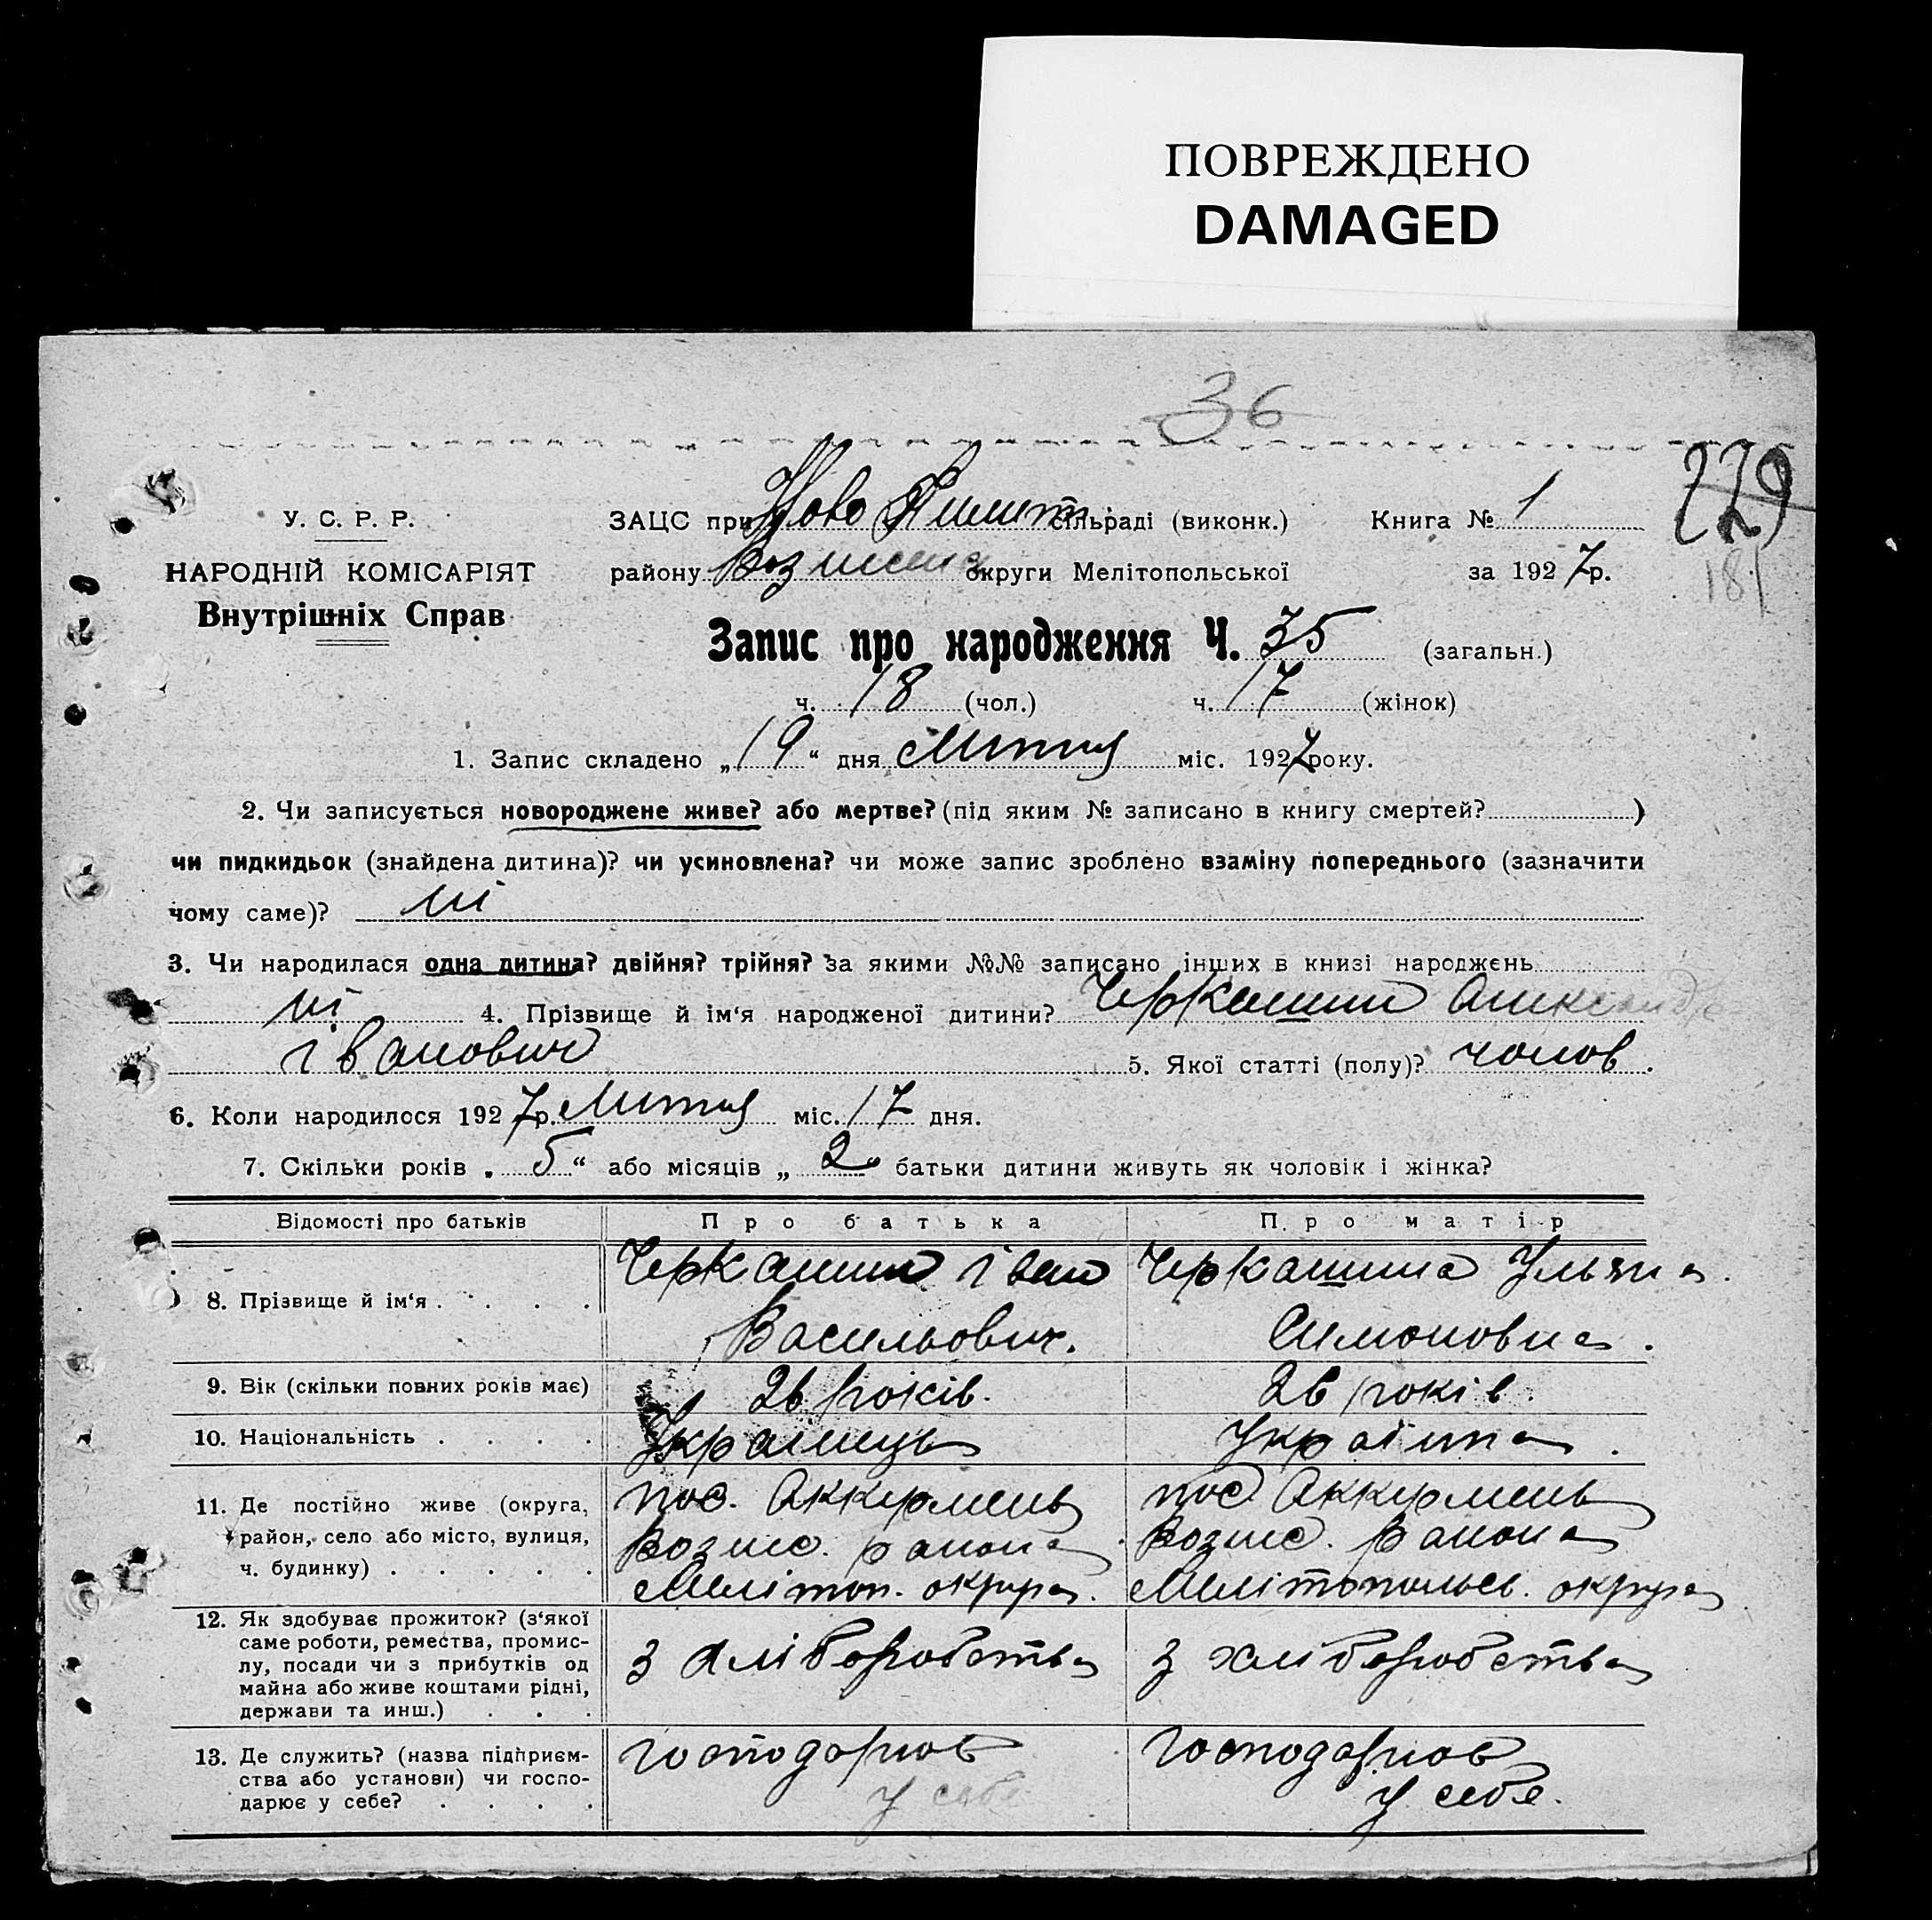 ПОВРЕЖДЕНО
DAMAGED
36
229
181
У. С. Р. Р.
НАРОДНІЙ КОМІСАРІЯТ
Внутрішніх Справ
ЗАЦС при Ново сільраді (виконк.) Книга № 1
району округи Мелітопольської за 1927 р.
Запис про народження Ч. 35 (загальн.)
ч. 18 (чол.) ч. 17 (жінок)
1. Запис складено „19“ дня міс. 1927 року.
2. Чи записується новороджене живе? або мертве? (під яким № записано в книгу смертей? )
чи пидкидьок (знайдена дитина)? чи усиновлена? чи може запис зроблено взаміну попереднього (зазначити
чому саме)? ні
3. Чи народилася одна дитина? двійня? трійня? За якими №№ записано інших в книзі народжень
ні 4. Прізвище й ім'я народженої дитини? Черкашин Александр
іванович 5. Якої статті (полу)? чолов.
6. Коли народилося 1927 р. міс. 17 дня.
7. Скільки років „5“ або місяців „2“ батьки дитини живуть як чоловік і жінка?
Відомості про батьків Про батька Про матір
8. Прізвище й ім'я . . . . Черкашин іван Васильович. Черкашина Ульяна Симоновна.
9. Вік (скільки повних років має) 26 років. 26 років.
10. Національність . . . . Українець Українка.
11. Де постійно живе (округа, пос. Аккермень пос. Аккермень
район, село або місто, вулиця, Вознес. района Вознес. района
ч. будинку) . . . . . Мелітоп. округа. Мелітопольск. округа
12. Як здобуває прожиток? (з'якої
саме роботи, ремества, промис-
лу, посади чи з прибутків од з хліборобства з хліборобства
майна або живе коштами рідні,
держави та инш.) . . .
13. Де служить? (назва підприєм- господарює господарює
ства або установи) чи госпо- у себе у себе.
дарює у себе? . . . .